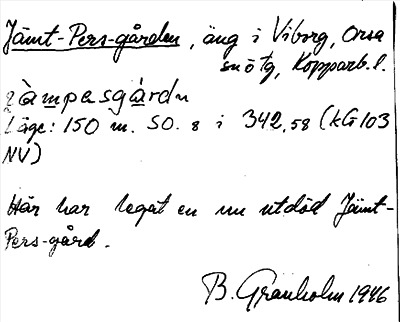 Jämt-Pers-gården, äng i Viborg, Orsa
snötg, Kopparb. l.
jàmpasgárdn
Läge: 150 m. SO. 8 i 342,58 (kG 103
NV)
Här har legat en nu utdöd Jämt-
Pers-gård.
B. Granholm 1946